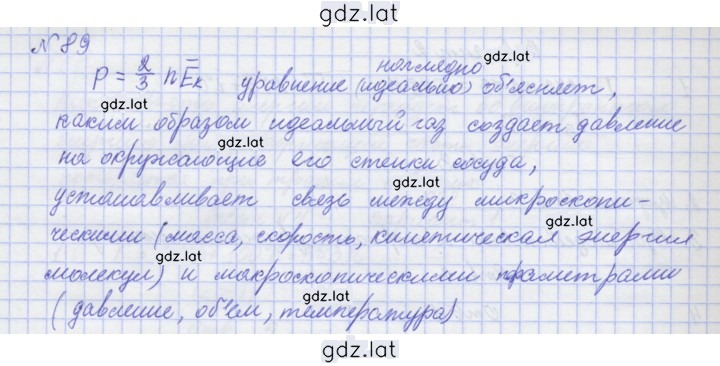 gdz.lat
№89
наглядно
gdz.lat
p = 2/3 n Ēк уравнение (идеально) объясняет,
gdz.lat
каким образом идеальный газ создает давление
gdz.lat
на окружающие его стенки сосуда,
gdz.lat
устанавливает связь между микроскопи-
gdz.lat
ческими (масса, скорость, кинетическая энергия
gdz.lat
молекул) и макроскопическими параметрами
gdz.lat
(давление, объем, температура)
gdz.lat